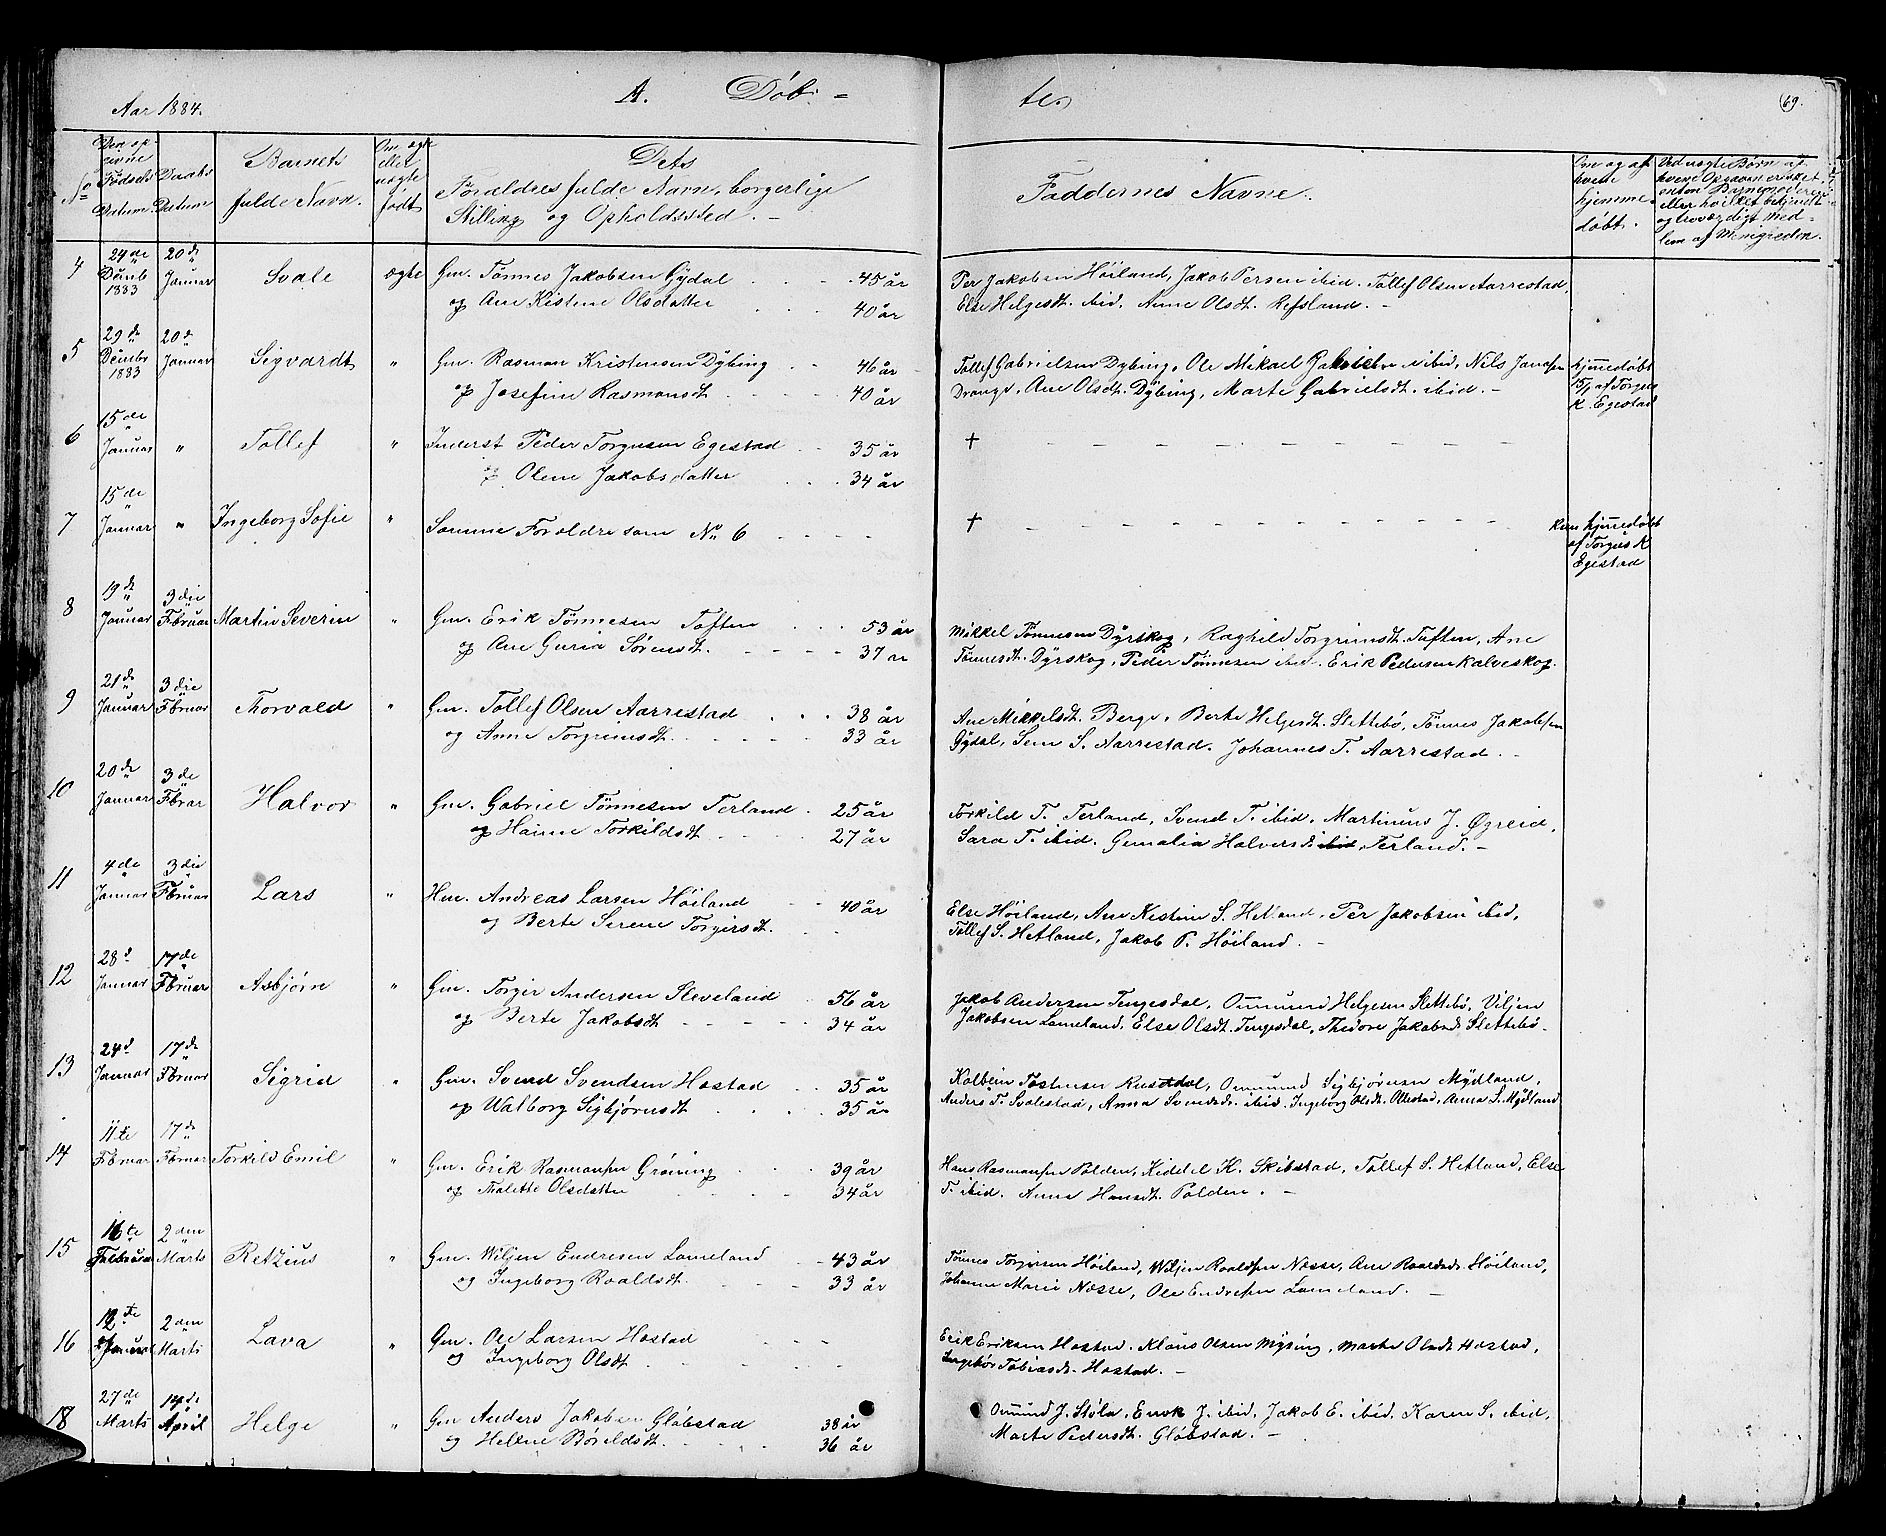 Aar 1884.
A. Døb-
te.
69.
No
Den op-
givne
Fødsels
Datum.
Daabs
Datum
Barnets
fulde Navn.
Om ægte
eller
uægte
født
Dets
Forældres fulde Navn, borgerlige
Stilling og Opholdssted. -
Faddernes Navne.
Om og af
hvem
hjemme-
døbt.
4 24de Decmb 1883 20de Januar Svale ægte Gm. Tönnes Jakobsen Gÿdal 45 år
og Ane Kistine Olsdatter 40 år
Per Jakobsen Höiland, Jakob Persen ibid. Tollef Olsen Aarrestad,
Else Helgesdt. ibid. Anne Olsdt. Refsland. -
5 29de Decmbr 1883 20de Januar Sigvardt " Gm. Rasmon Kristensen Dÿbing 46 år
og Josefine Rasmonsdt. 40 år
Tollef Gabrielsen Dybing, Ole Mikael Gabrielsen ibid, Nils Jonassen
Drange, Ane Olsdt. Dÿbing, Marte Gabrielsdt. ibid. -
hjemmedøbt
15/1 af Torgeis
K. Egestad
6 15de Januar " Tollef " Inderst Peder Torgeisen Egestad 35 år
og Olene Jakobsdatter 34 år
†
7 15de Januar " Ingeborg Sofie " Samme Forældre som No 6
†
kun hjemmedøbt
af Torgeis K
Egestad
8 19de Januar 3die Februar Martin Severin " Gm. Erik Tönnesen Toften 53 år
og Ane Guria Sörensdt. 37 år
Mikkel Tönnesen Dÿrskog, Raghild Torgrimsdt. Toften, Ane
Tönnesdt. Dÿrskog, Peder Tönnesen ibid. Erik Pedersen Kalveskog.
9 21de Januar 3die Februar Thorvald " Gm. Tollef Olsen Aarrestad 38 år
og Anne Torgrimsdt. 33 år
Ane Mikkelsdt. Berge, Berte Helgesdt. Slettebö, Tönnes Jakobsen
Gÿdal, Sem S. Aarrestad. Johannes T. Aarrestad. -
10 20de Januar 3die Febrar Halvor " Gm. Gabriel Tönnesen Terland 25 år
og Hanne Torkildsdt. 27 år
Torkild T. Terland, Svend T. ibid, Martinus J. Øgreid,
Sara T. ibid. Gemalia Halversdt. ibid Terland. -
11 4de Januar 3die Februar Lars " Hm. Andreas Larsen Höiland 40 år
og Berte Serene Torgersdt.
Else Höiland, Ane Kistine S. Hetland, Per Jakobsen ibid,
Tollef S. Hetland, Jakob P. Höiland. -
12 28d Januar 17de Februar Asbjørn " Gm. Torger Andersen Sleveland 56 år
og Berte Jakobsdt 34 år
Jakob Andersen Tengesdal, Ommund Helgesen Slettebö, Viljen
Jakobsen Lomeland, Else Olsdt. Tengesdal, Thedore Jakobsdt Slettebö.
13 24d Januar 17de Februar Sigrid " Gm. Svend Svendsen Hostad 35 år
og Walborg Sigbjörnsdt 35 år
Kolbein Tostensen Rusdal, Ommund Sigbjörnsen Mÿdland,
Anders T. Svalestad, Anna Svendsdt. ibid. Ingeborg Olsdt. Ollestad, Anna S. Mÿdland
14 11te Februar 17de Februar Torkild Emil " Gm. Erik Rasmonsen Gröning 39 år
og Malette Olsdatter 34 år
Hans Rasmonsen Polden, Kiddel K. Skibstad, Tollef S. Hetland, Else
T. ibid. Anna Hansdt. Polden. -
15 16te Februar 2den Marts Retzius " Gm. Wiljen Endresen Lomeland 43 år
og Ingeborg Roaldsdt. 33 år
Tönnes Torgersen Höiland, Wiljen Roaldsen Nosse, Ane Roaldsdt. Höiland,
Johanne Marie Nosse, Ole Endresen Lomeland. -
16 12te 2den Marts Lava " Gm. Ole Larsen Hostad
og Ingeborg Olsdt.
Erik Eriksen Hostad. Klaus Olsen Mÿsing, Marte Olsdt Hostad,
Ingebör Tobiasdt. Hostad. -
18 27de Marts 14de April Helge " Gm Anders Jakobsen Glöbstad 38 år
og Helene Böreldsdt. 36 år
Ommund J. Støle, Enok J. ibid, Jakob E. ibid. Karen S. ibid,
Marte Pedersdt. Glöbstad. -